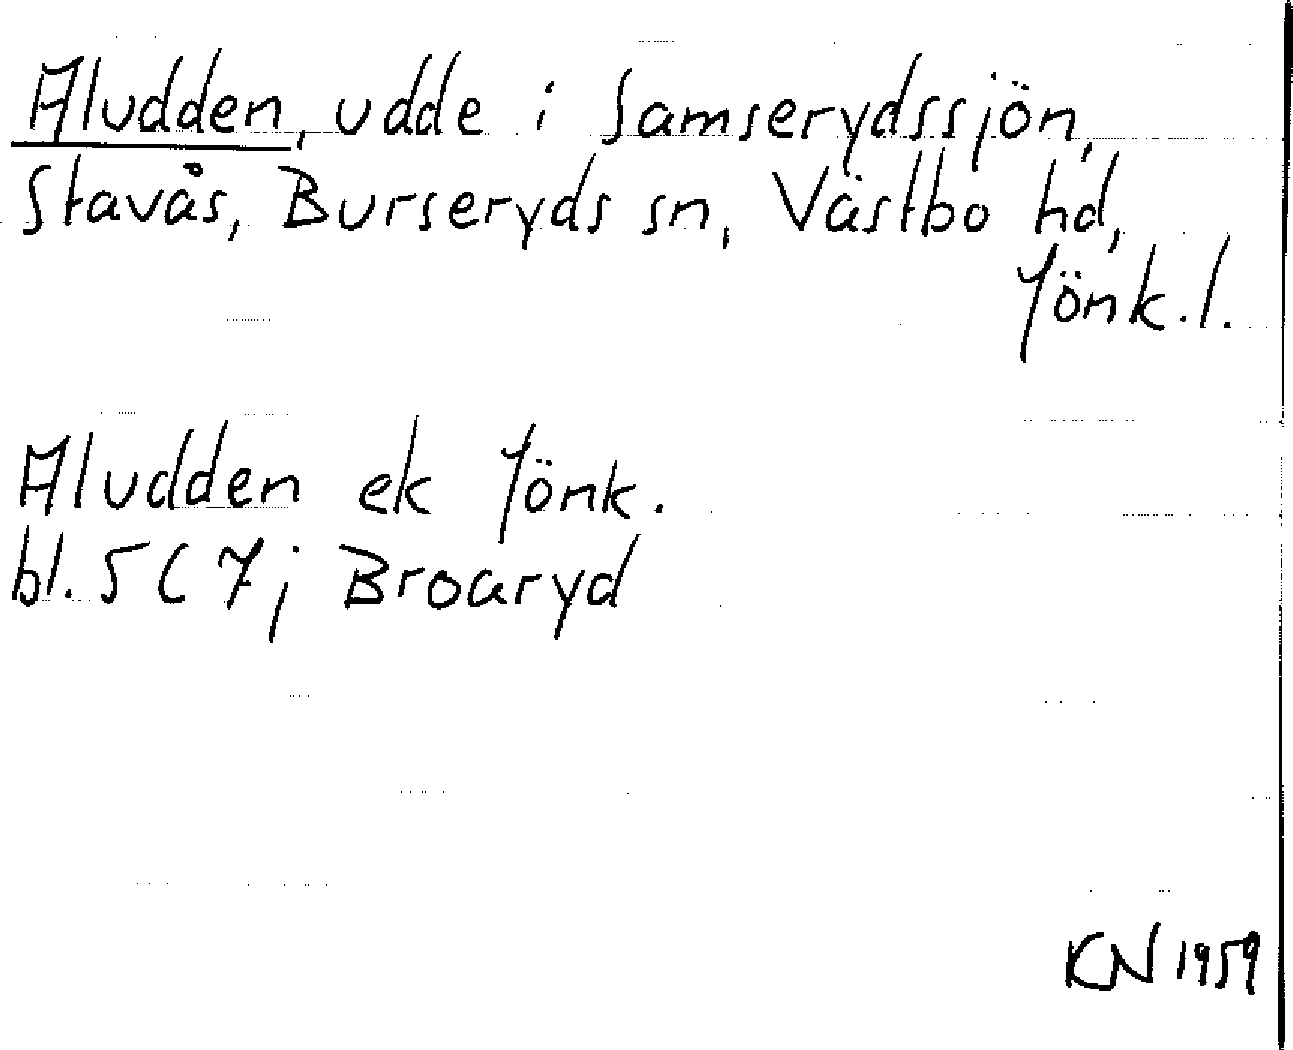 Aludden, udde i Samserydssjön,
Stavås, Burseryds sn, Västbo hd,
Jönk.l.
Aludden ek Jönk.
bl. 5C7; Broaryd
KN 1959